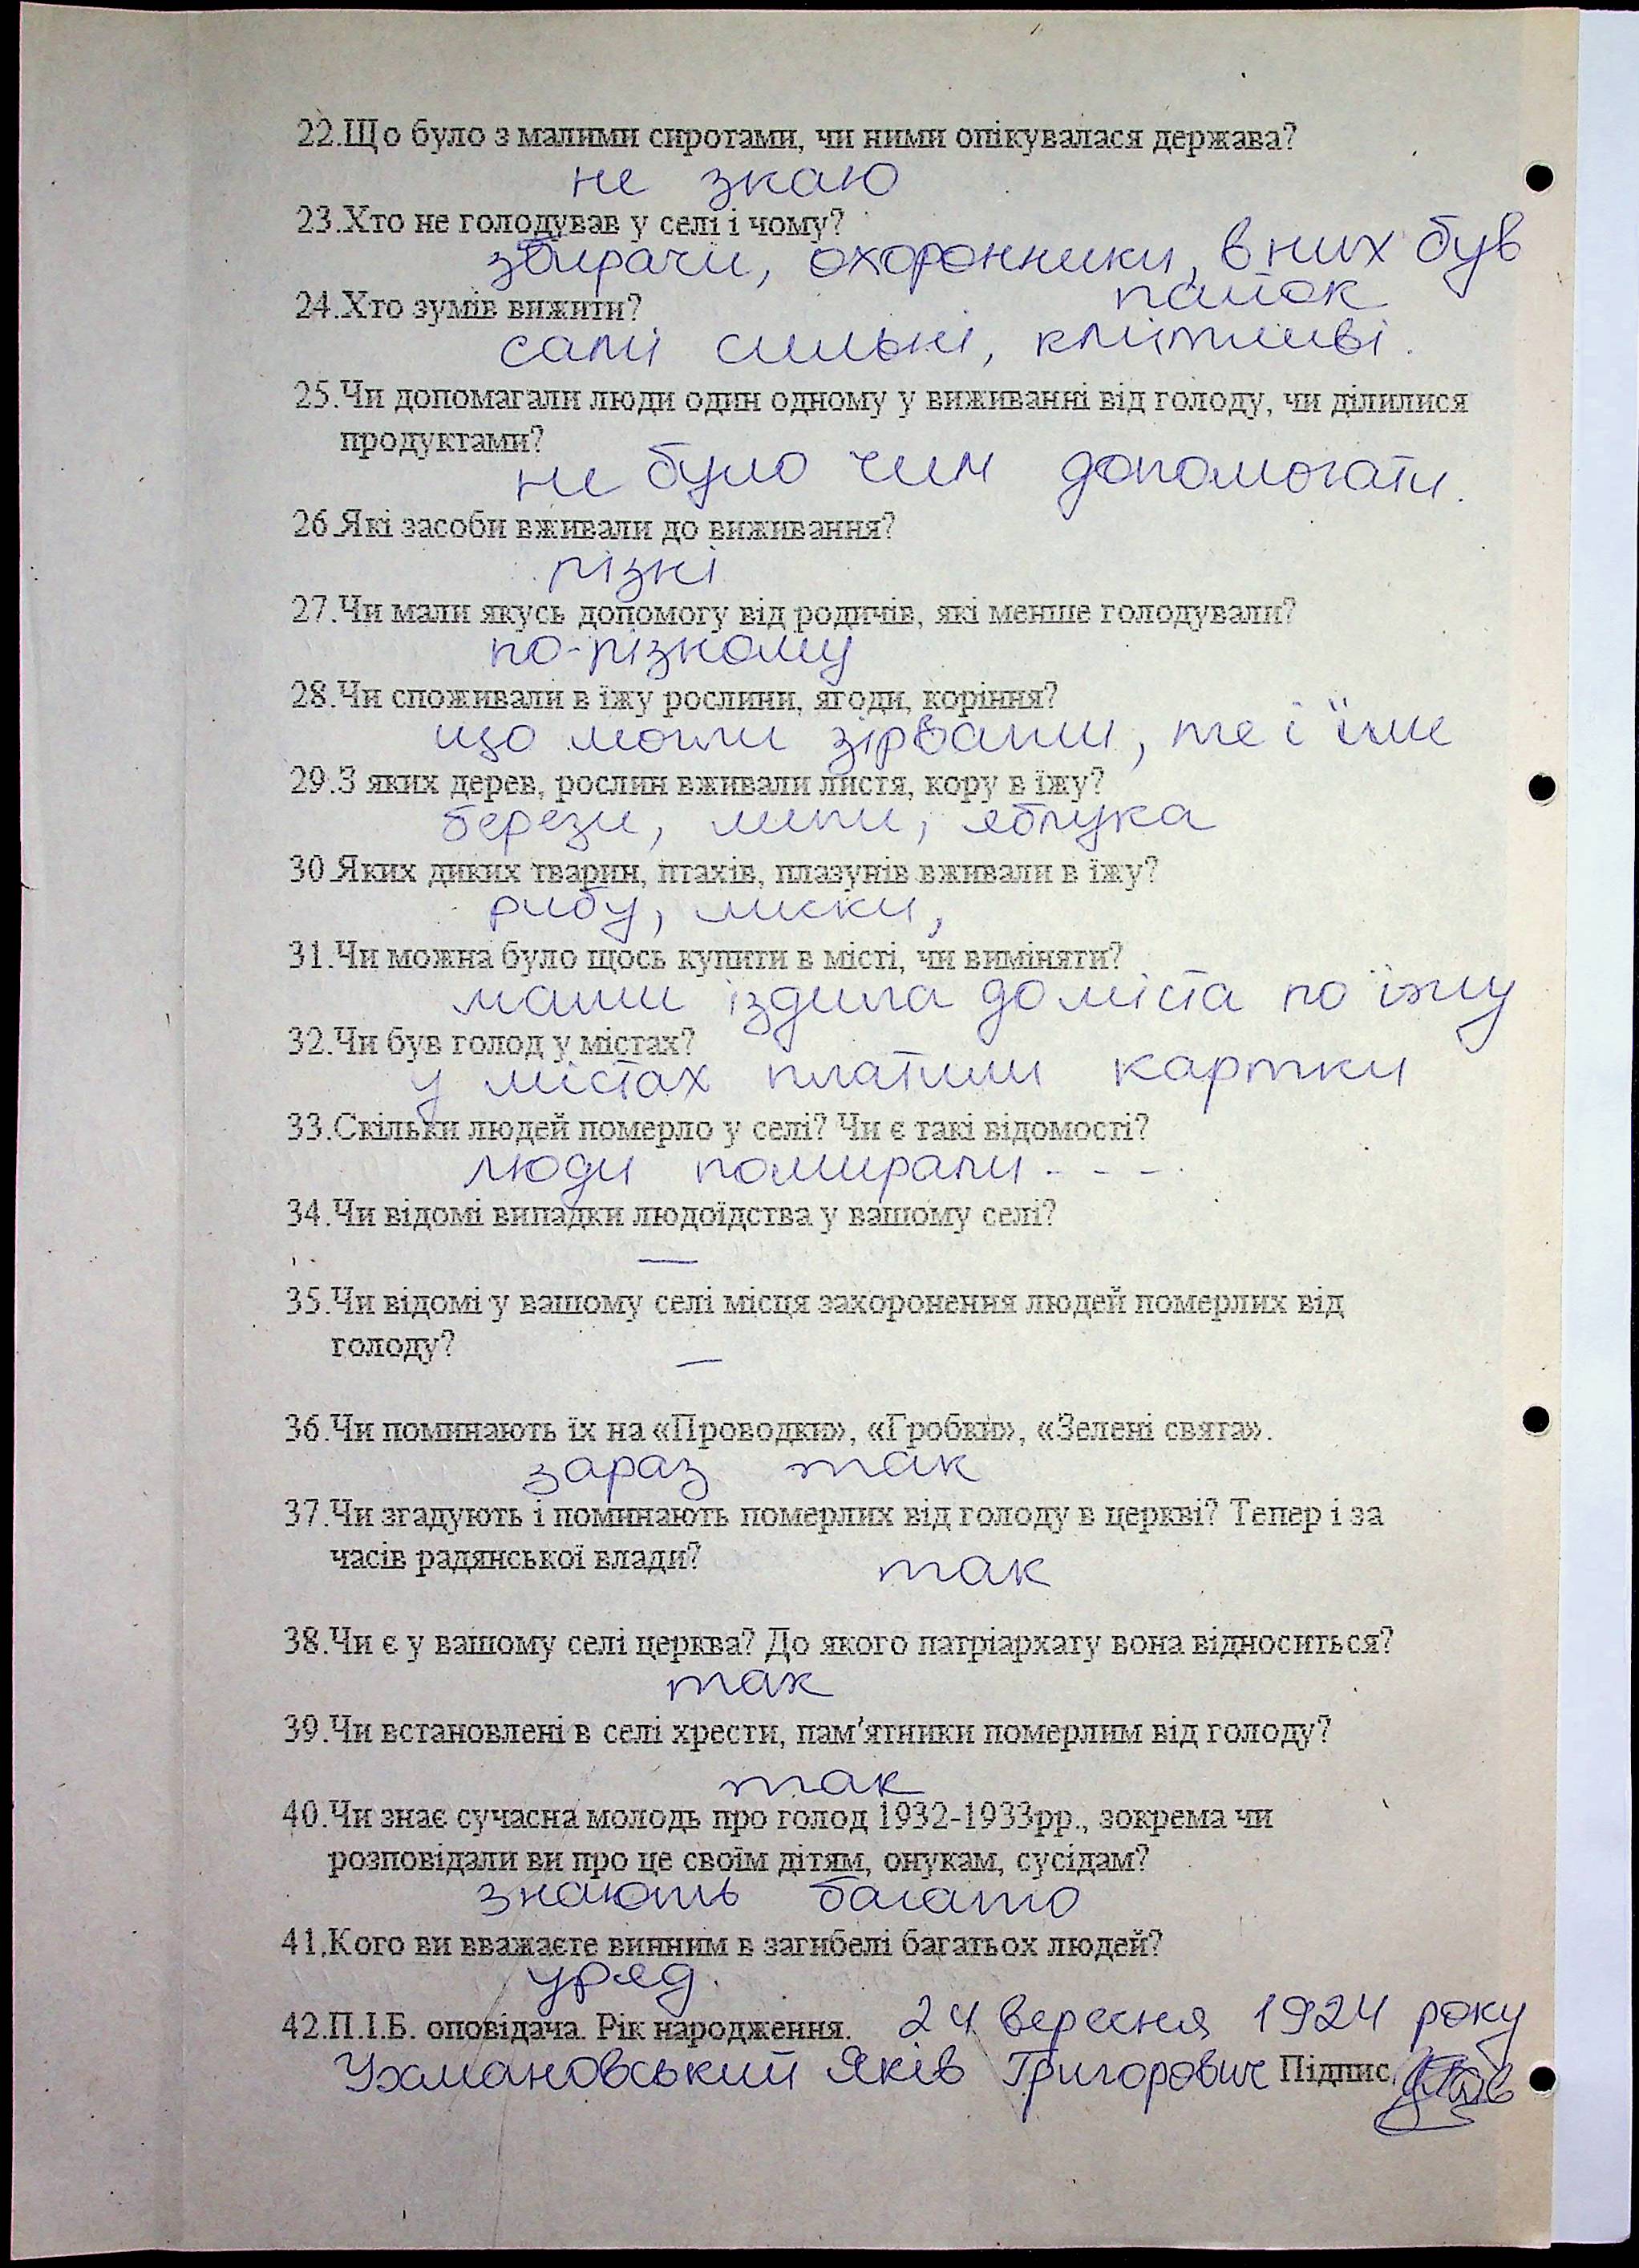 22.Що було з малими сиротами, чи ними опікувалася держава?
не знаю
23.Хто не голодував у селі і чому?
збирачи, охоронники, в них був
пайок
24.Хто зумів вижити?
самі сильні, кмітливі.
25.Чи допомагали люди один одному у виживанні від голоду, чи ділилися
продуктами?
не було чим допомогати.
26.Які засоби вживали до виживання?
різні
27.Чи мали якусь допомогу від родичів, які менше голодували?
по-різному
28.Чи споживали в їжу рослини, ягоди, коріння?
що могли зірвати, те і їли
29.З яких дерев, рослин вживали листя, кору в їжу?
берези, липи, яблука
30.Яких диких тварин, птахів, плазунів вживали в їжу?
рибу,
31.Чи можна було щось купити в місті, чи виміняти?
мати їздила до міста по їжу
32.Чи був голод у містах?
у містах платили картки
33.Скільки людей померло у селі? Чи є такі відомості?
люди помирали - - -
34.Чи відомі випадки людоїдства у вашому селі?
—
35.Чи відомі у вашому селі місця захоронення людей померлих від
голоду?
—
36.Чи поминають їх на «Проводки», «Гробки», «Зелені свята».
зараз так
37.Чи згадують і поминають померлих від голоду в церкві? Тепер і за
часів радянської влади?
так
38.Чи є у вашому селі церква? До якого патріархату вона відноситься?
так
39.Чи встановлені в селі хрести, пам'ятники померлим від голоду?
так
40.Чи знає сучасна молодь про голод 1932-1933рр., зокрема чи
розповідали ви про це своїм дітям, онукам, сусідам?
знають багато
41.Кого ви вважаєте винним в загибелі багатьох людей?
уряд.
42.П.І.Б. оповідача. Рік народження. 24 вересня 1924 року
Ухмановський Яків Григорович Підпис